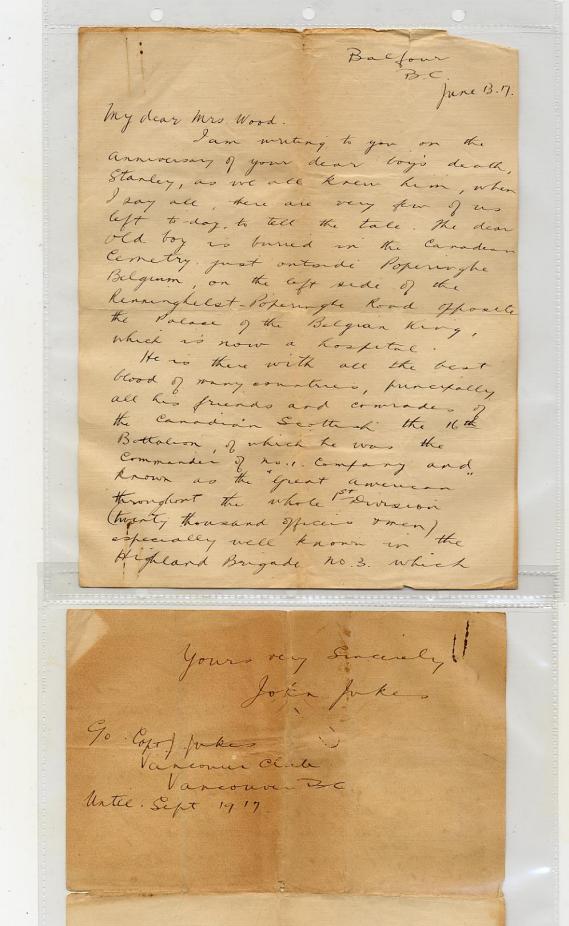 Balfour
B.C.
June 13. 17.
My dear Mrs Wood.
I am writing to you on the
anniversary of your dear boy's death,
Stanley, as we all knew him, when
I say all, there are very few of us
left to-day, to tell the tale. The dear
old boy is buried in the Canadian
Cemetry just outside Poperinghe
Belgium, on the left side of the
Renninghelst-Poperinghe Road opposite
the Palace of the Belgian King,
which is now a hospital.
He is there with all the best
blood of many countries, principally
all his friends and comrades of
the Canadian Scottish the 16th
Battalion, of which he was the
Commander of No. 1. Company and
known as the "Great American"
throughout the whole 1st Division
(twenty thousand officers & men)
especially well known in the
Highland Brigade No. 3. which
Yours very Sincerely
John Jukes
C/o Jukes
Vancouver Club
Vancouver BC
Until Sept 1917